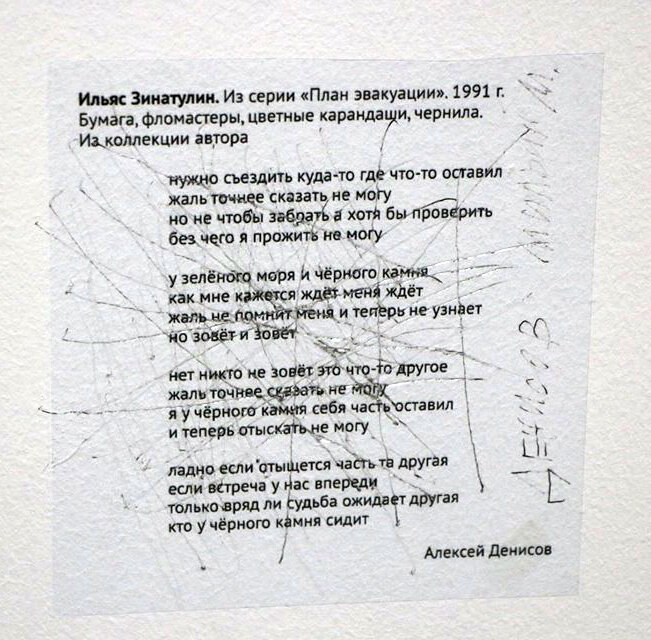 Ильяс Зинатулин. Из серии «План эвакуации». 1991 г.
Бумага, фломастеры, цветные карандаши, чернила.
Из коллекции автора
нужно съездить куда-то где что-то оставил
жаль точнее сказать не могу
но не чтобы забрать а хотя бы проверить
без чего я прожить не могу
у зелёного моря и чёрного камня
как мне кажется ждёт меня ждёт
жаль не помнит меня и теперь не узнает
но зовёт и зовёт
нет никто не зовёт это что-то другое
жаль точнее сказать не могу
я у чёрного камня себя часть оставил
и теперь отыскать не могу
ладно если отыщется часть та другая
если встреча у нас впереди
только вряд ли судьба ожидает другая
кто у чёрного камня сидит
Алексей Денисов